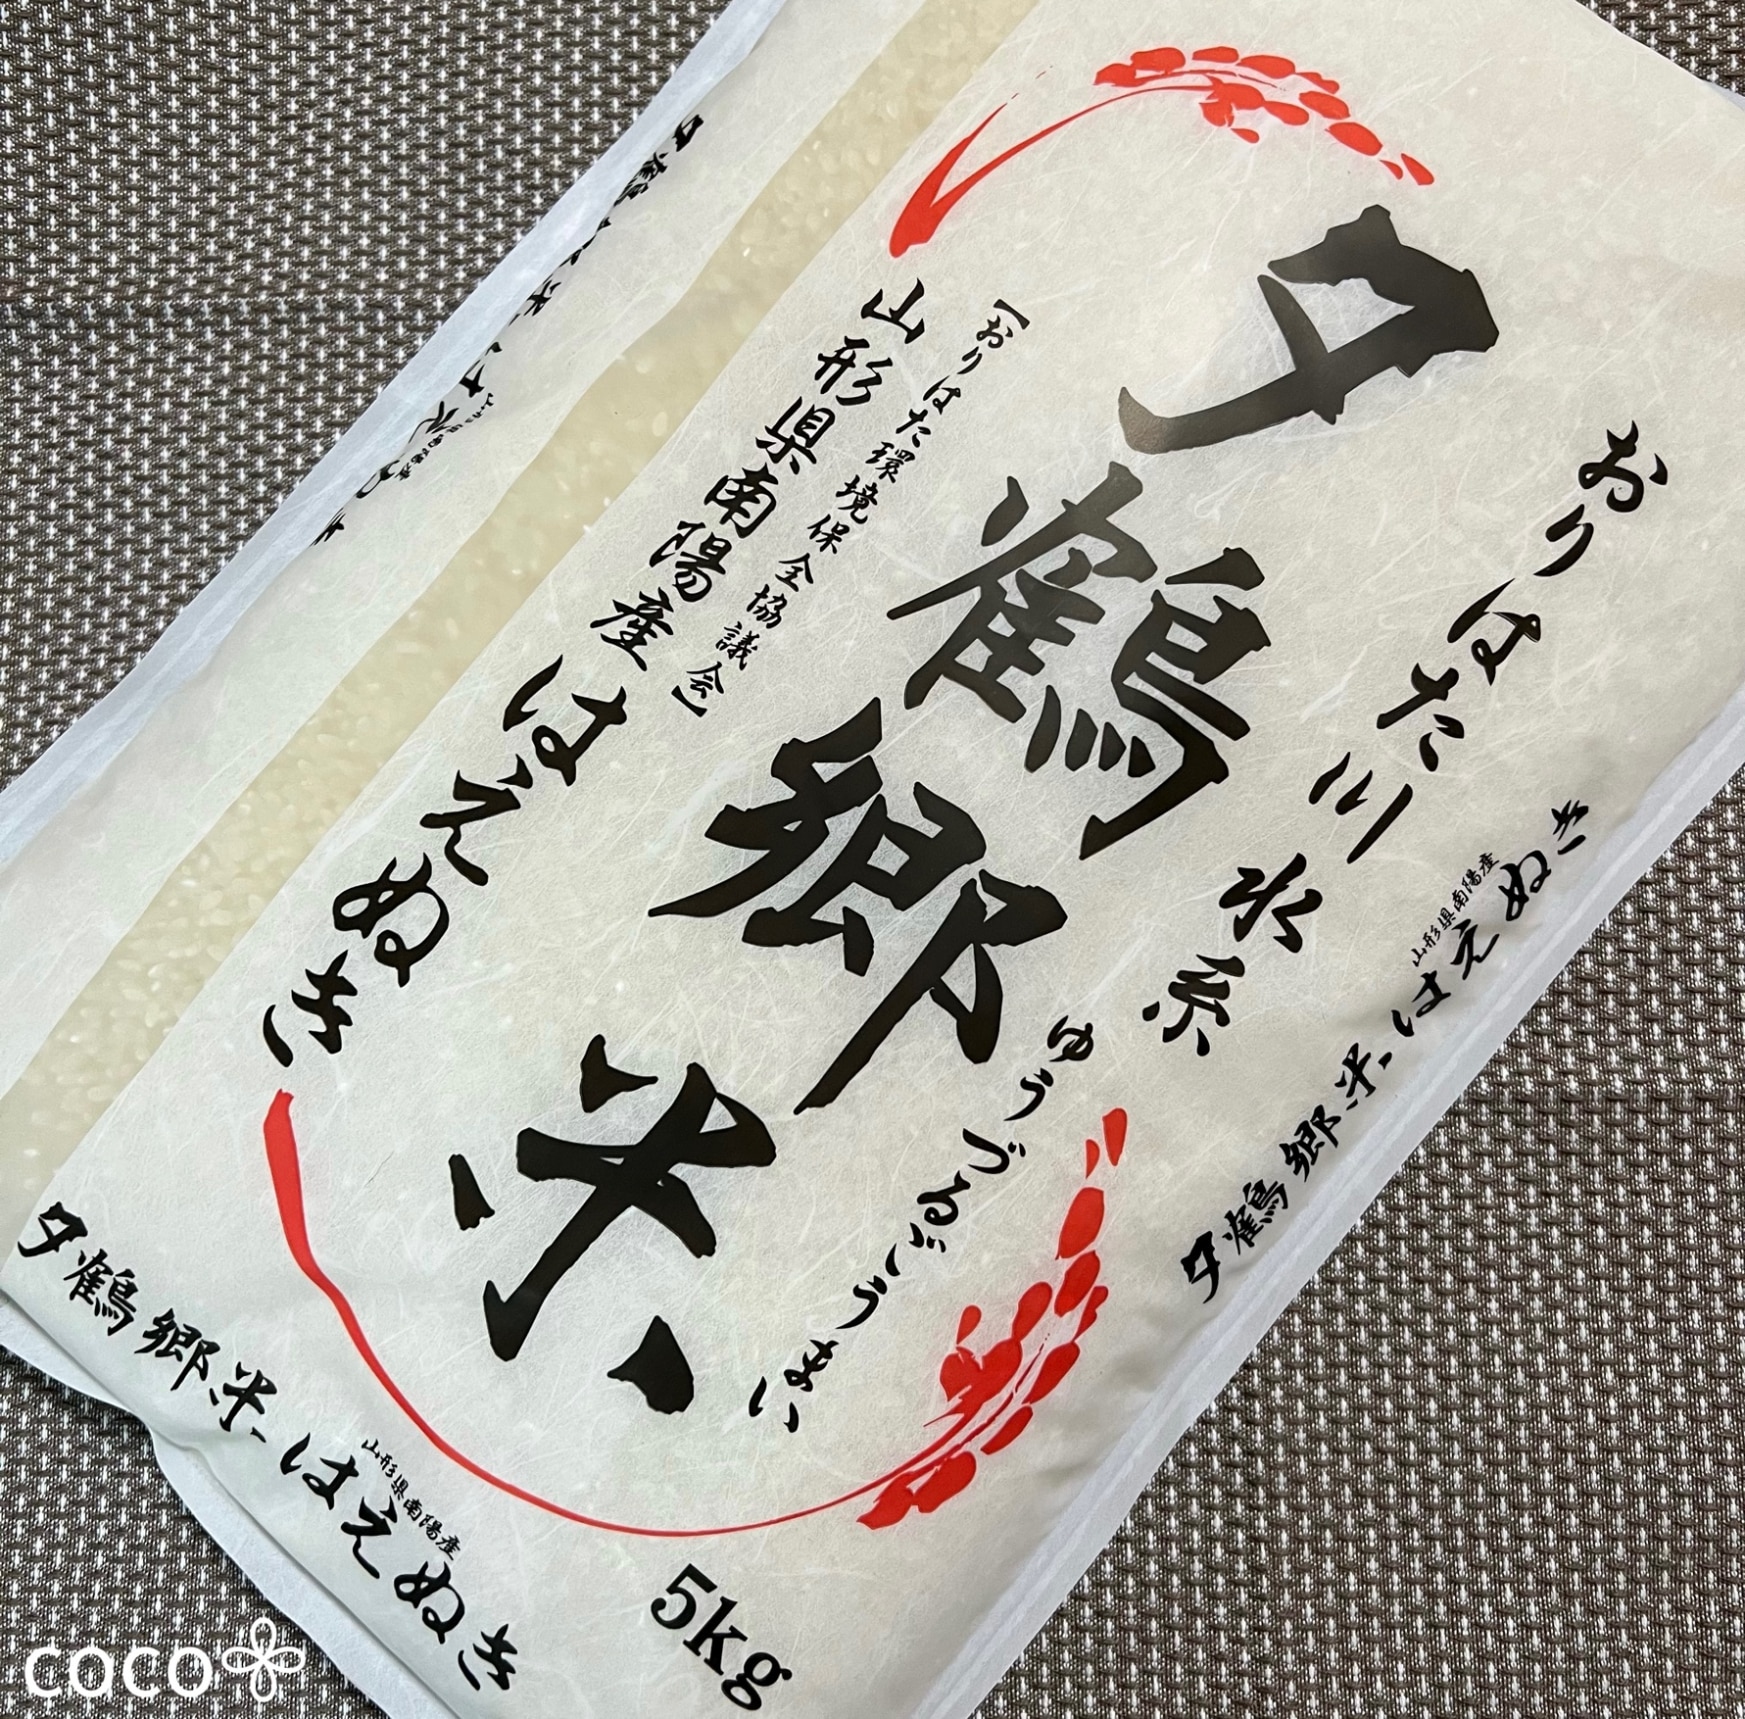 おりはた川水系
夕鶴郷米
ゆうづるごうまい
【おりはた環境保全協議会】
山形県南陽産
はえぬき
5kg
夕鶴郷米、はえぬき
山形県南陽産
夕鶴郷米、はえぬき
山形県南陽産
coco